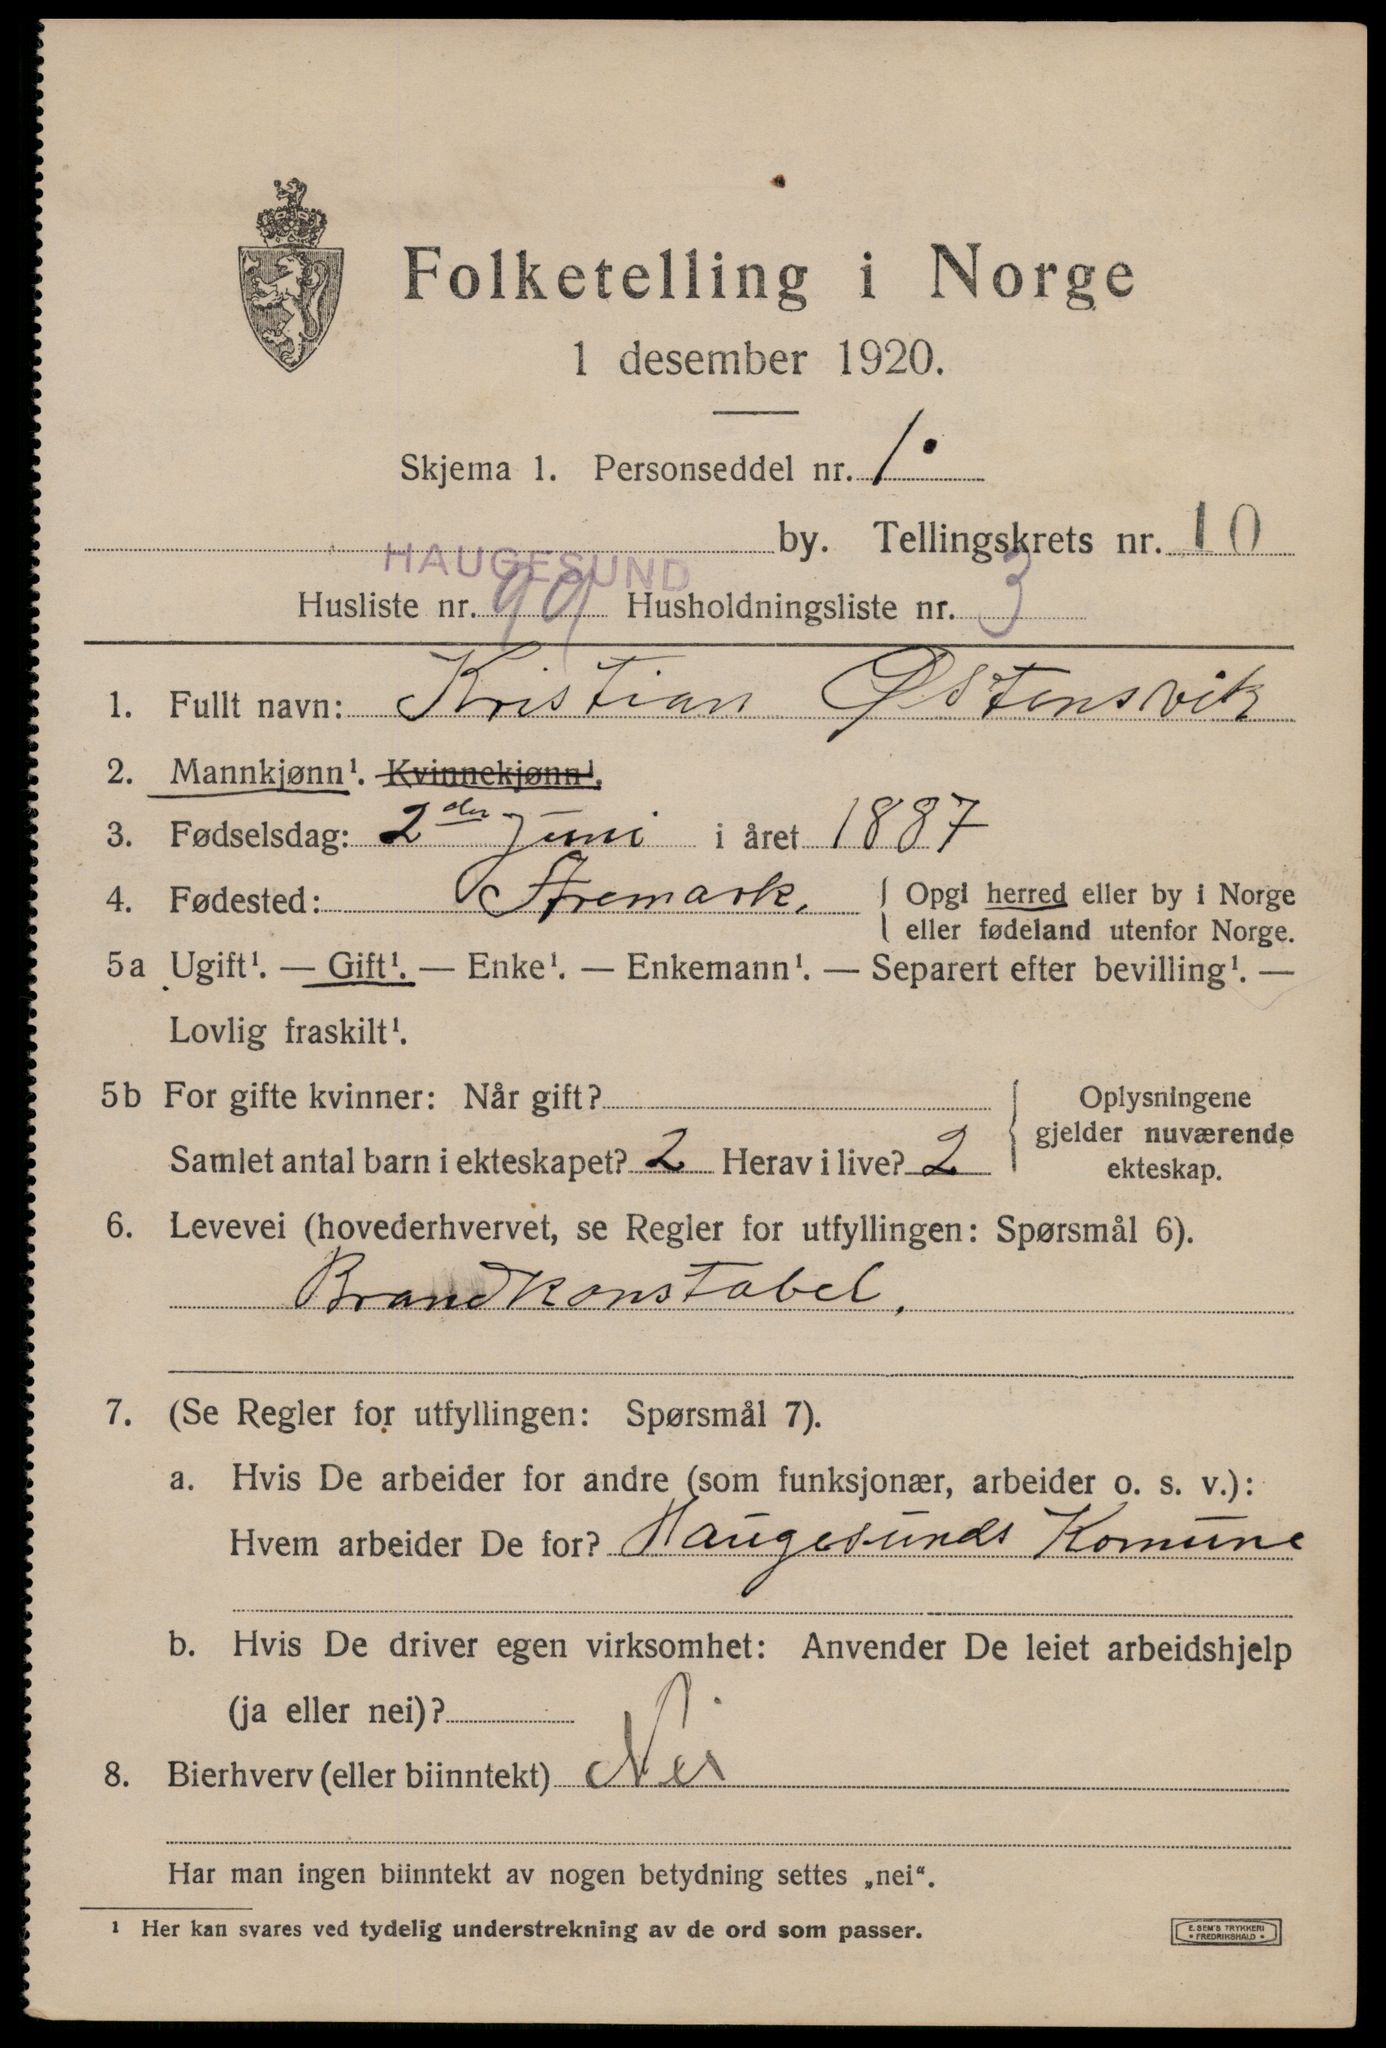 Folketelling i Norge
1 desember 1920.
Skjema 1. Personseddel nr. 1.
HAUGESUND by. Tellingskrets nr. 10
Husliste nr. 99 Husholdningsliste nr. 3
1. Fullt navn: Kristian Østensvik
2. Mannkjønn¹. Kvinnekjønn¹.
3. Fødselsdag: 2den Juni i året 1887
4. Fødested: Aremark. { Opgi herred eller by i Norge
eller fødeland utenfor Norge.
5a Ugift¹. — Gift¹. — Enke¹. — Enkemann¹. — Separert efter bevilling¹. —
Lovlig fraskilt¹.
5b For gifte kvinner: Når gift? { Oplysningene
gjelder nuværende
Samlet antal barn i ekteskapet? 2 Herav i live? 2 ekteskap.
6. Levevei (hovederhvervet, se Regler for utfyllingen: Spørsmål 6).
Brandkonstabel.
7. (Se Regler for utfyllingen: Spørsmål 7).
a. Hvis De arbeider for andre (som funksjonær, arbeider o. s. v.):
Hvem arbeider De for? Haugesunds Komune
b. Hvis De driver egen virksomhet: Anvender De leiet arbeidshjelp
(ja eller nei)?
8. Bierhverv (eller biinntekt) Nei
Har man ingen biinntekt av nogen betydning settes „nei“.
¹ Her kan svares ved tydelig understrekning av de ord som passer.
E. SEM'S TRYKKERI
• FREDRIKSHALD •